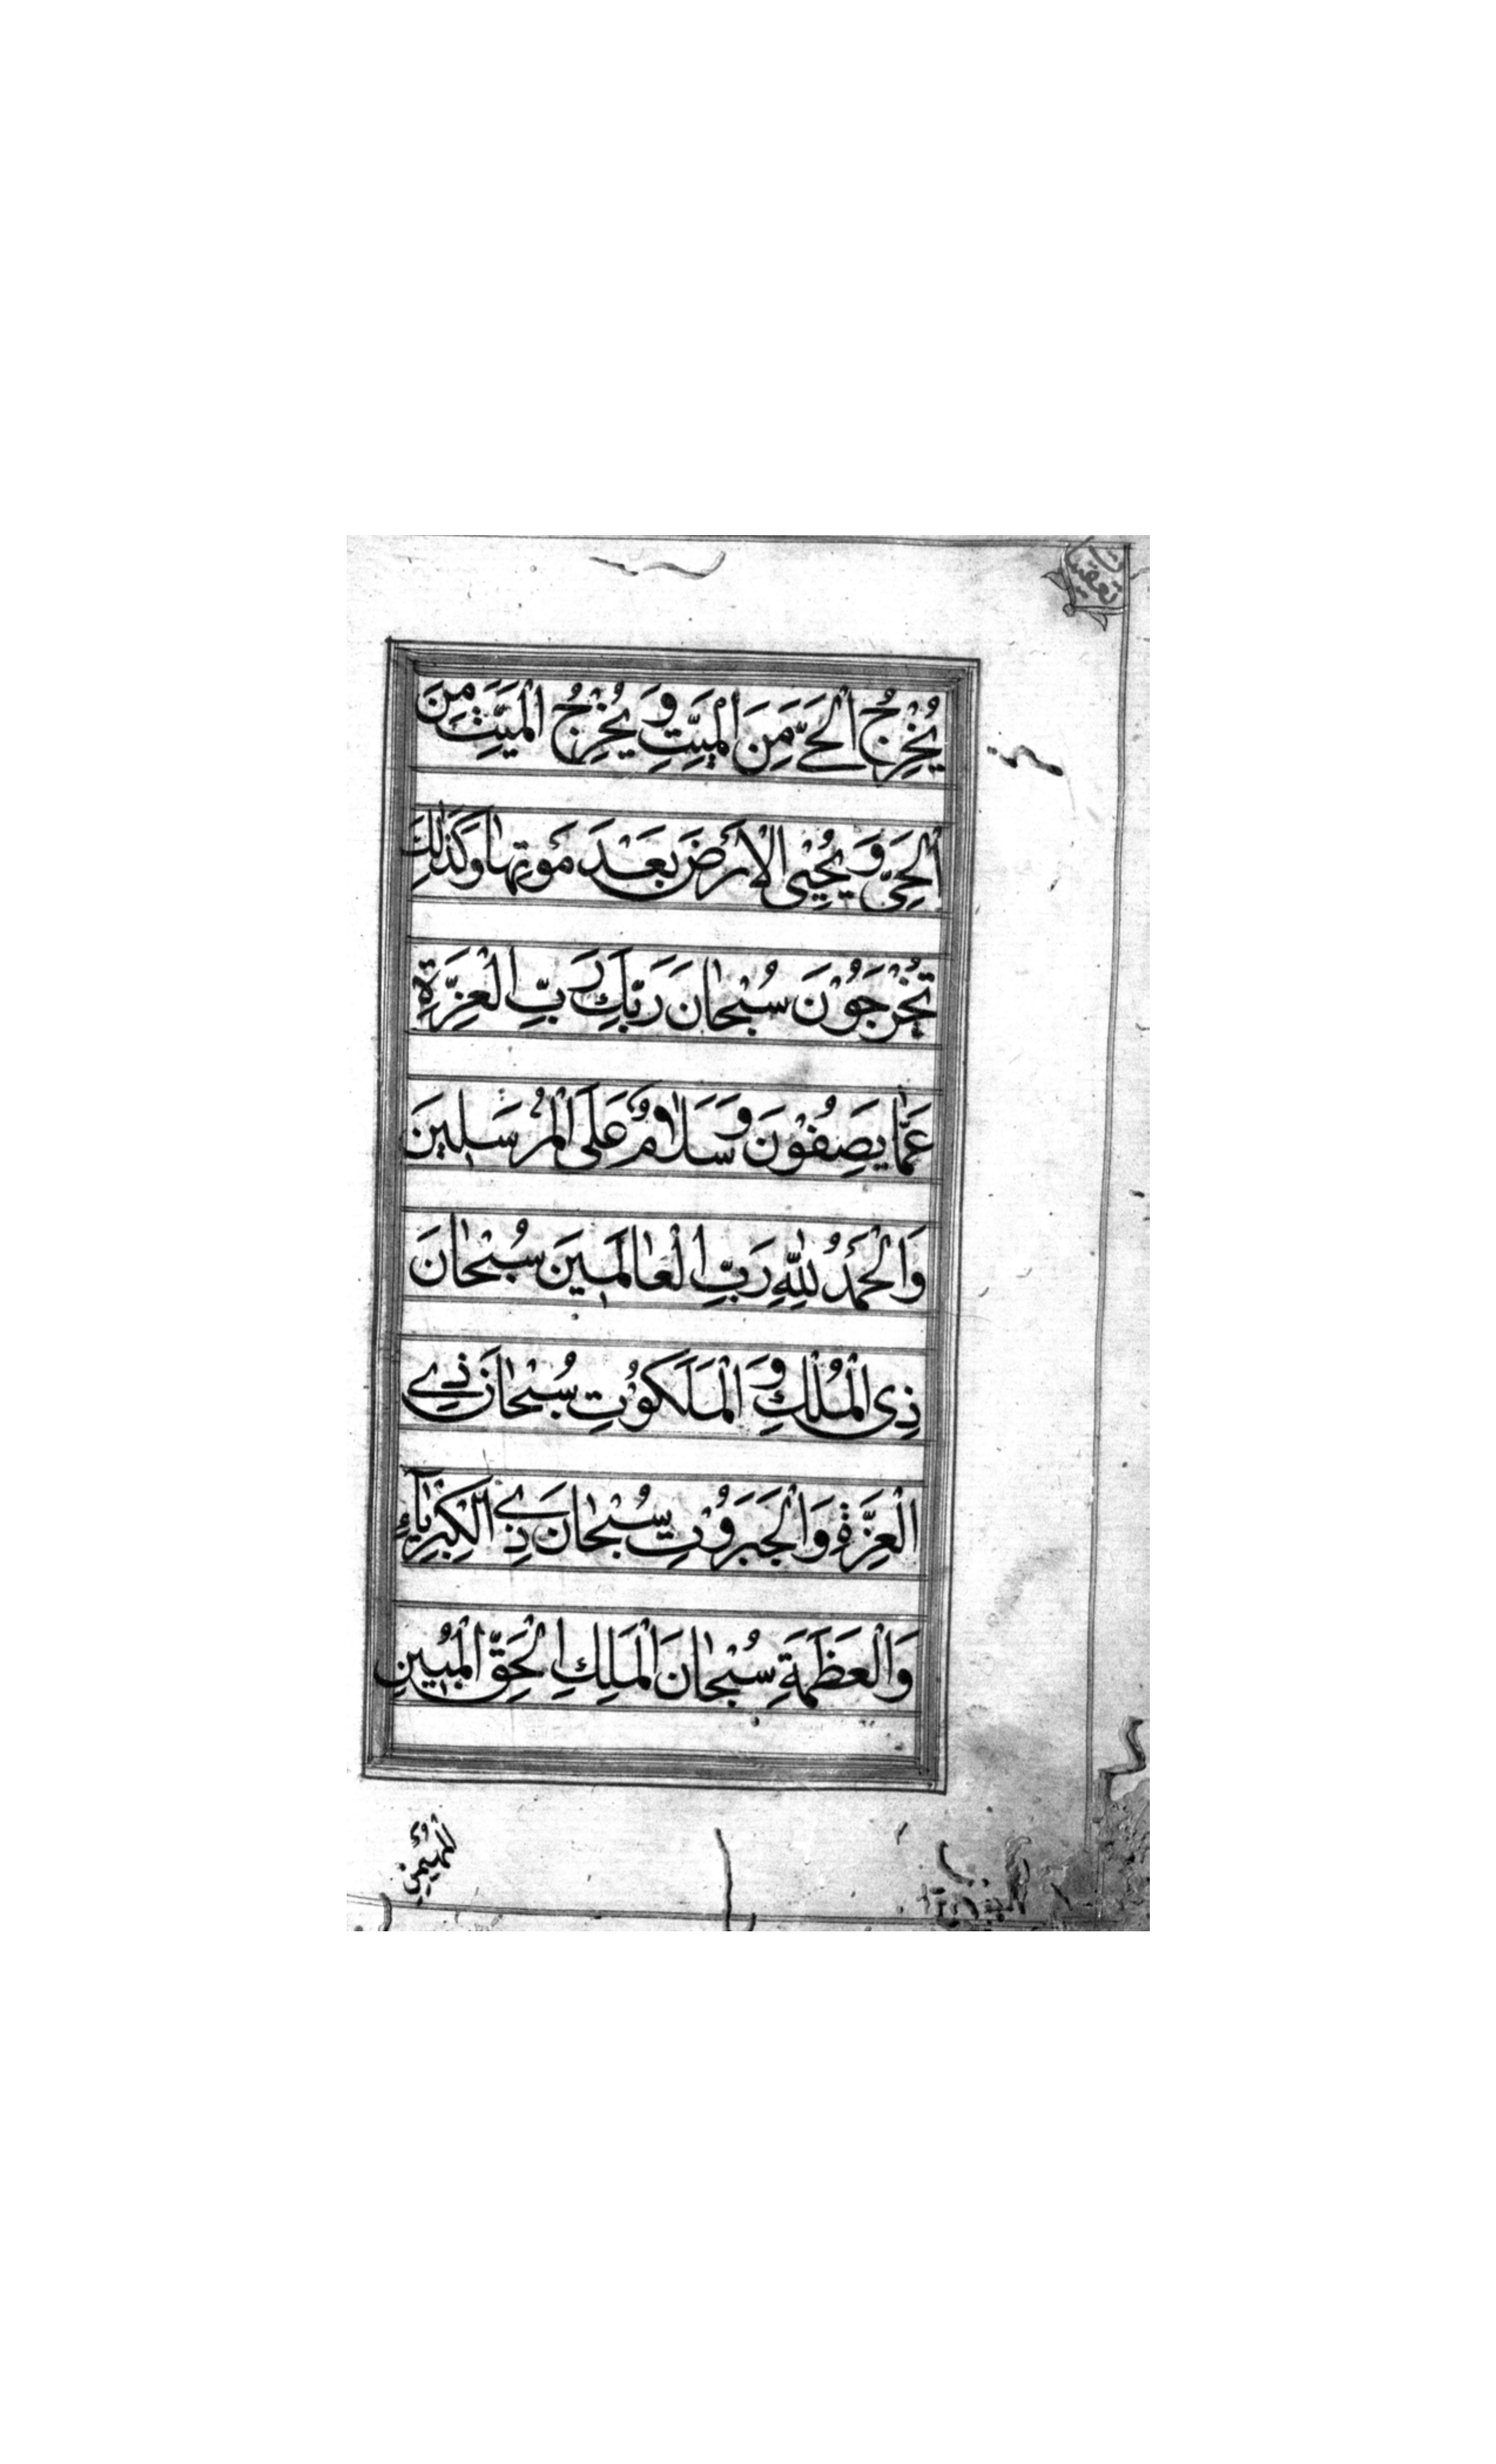 يُخْرِجُ الْحَيَّ مِنَ الْمَيِّتِ وَيُخْرِجُ الْمَيِّتَ مِنَ
الْحَيِّ وَيُحْيِي الْأَرْضَ بَعْدَ مَوْتِهَا وَكَذٰلِكَ
تُخْرَجُوْنَ سُبْحٰانَ رَبِّكَ رَبِّ الْعِزَّةِ
عَمّٰا يَصِفُوْنَ وَسَلَاٰمٌ عَلَى الْمُرْسَلِينَ
وَالْحَمْدُ لِلّٰهِ رَبِّ الْعٰالَمِينَ سُبْحٰانَ
ذِي الْمُلْكِ وَالْمَلَكُوْتِ سُبْحٰانَ ذِي
الْعِزَّةِ وَالْجَبَرُوْتِ سُبْحٰانَ ذِي الْكِبْرِيٰآءِ
وَالْعَظَمَةِ سُبْحٰانَ الْمَلِكِ الْحَقِّ الْمُبِينِ
الْمُهَيْمِنِ